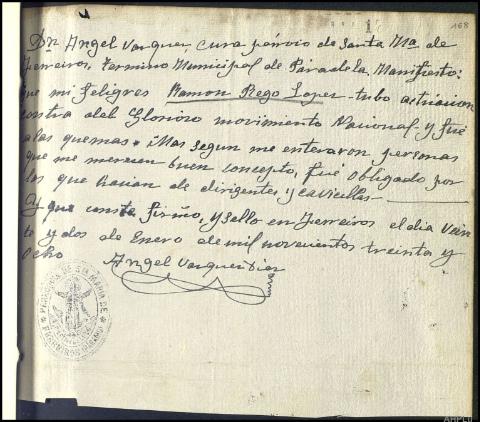 168
Dn Angel Vazquez, cura párroco de Santa Ma. de
Ferreiros, termino Municipal de Paradela, Manifiesto:
que mi feligres Ramon Rego Lopez - tubo actuacion
contra del Glorioso movimiento Nacional - y fué
a las quemas. Mas segun me enteraron personas
que me merecen buen concepto, fué obligado por
los que hacian de dirigentes y cavecillas
Y que conste firmo, y sello en Ferreiros el dia vein
te y dos de Enero de mil novecientos treinta y
ocho
Angel Vazquez Diaz
PARROQUIA DE STA MARIA DE
FERREIROS
AHPLU